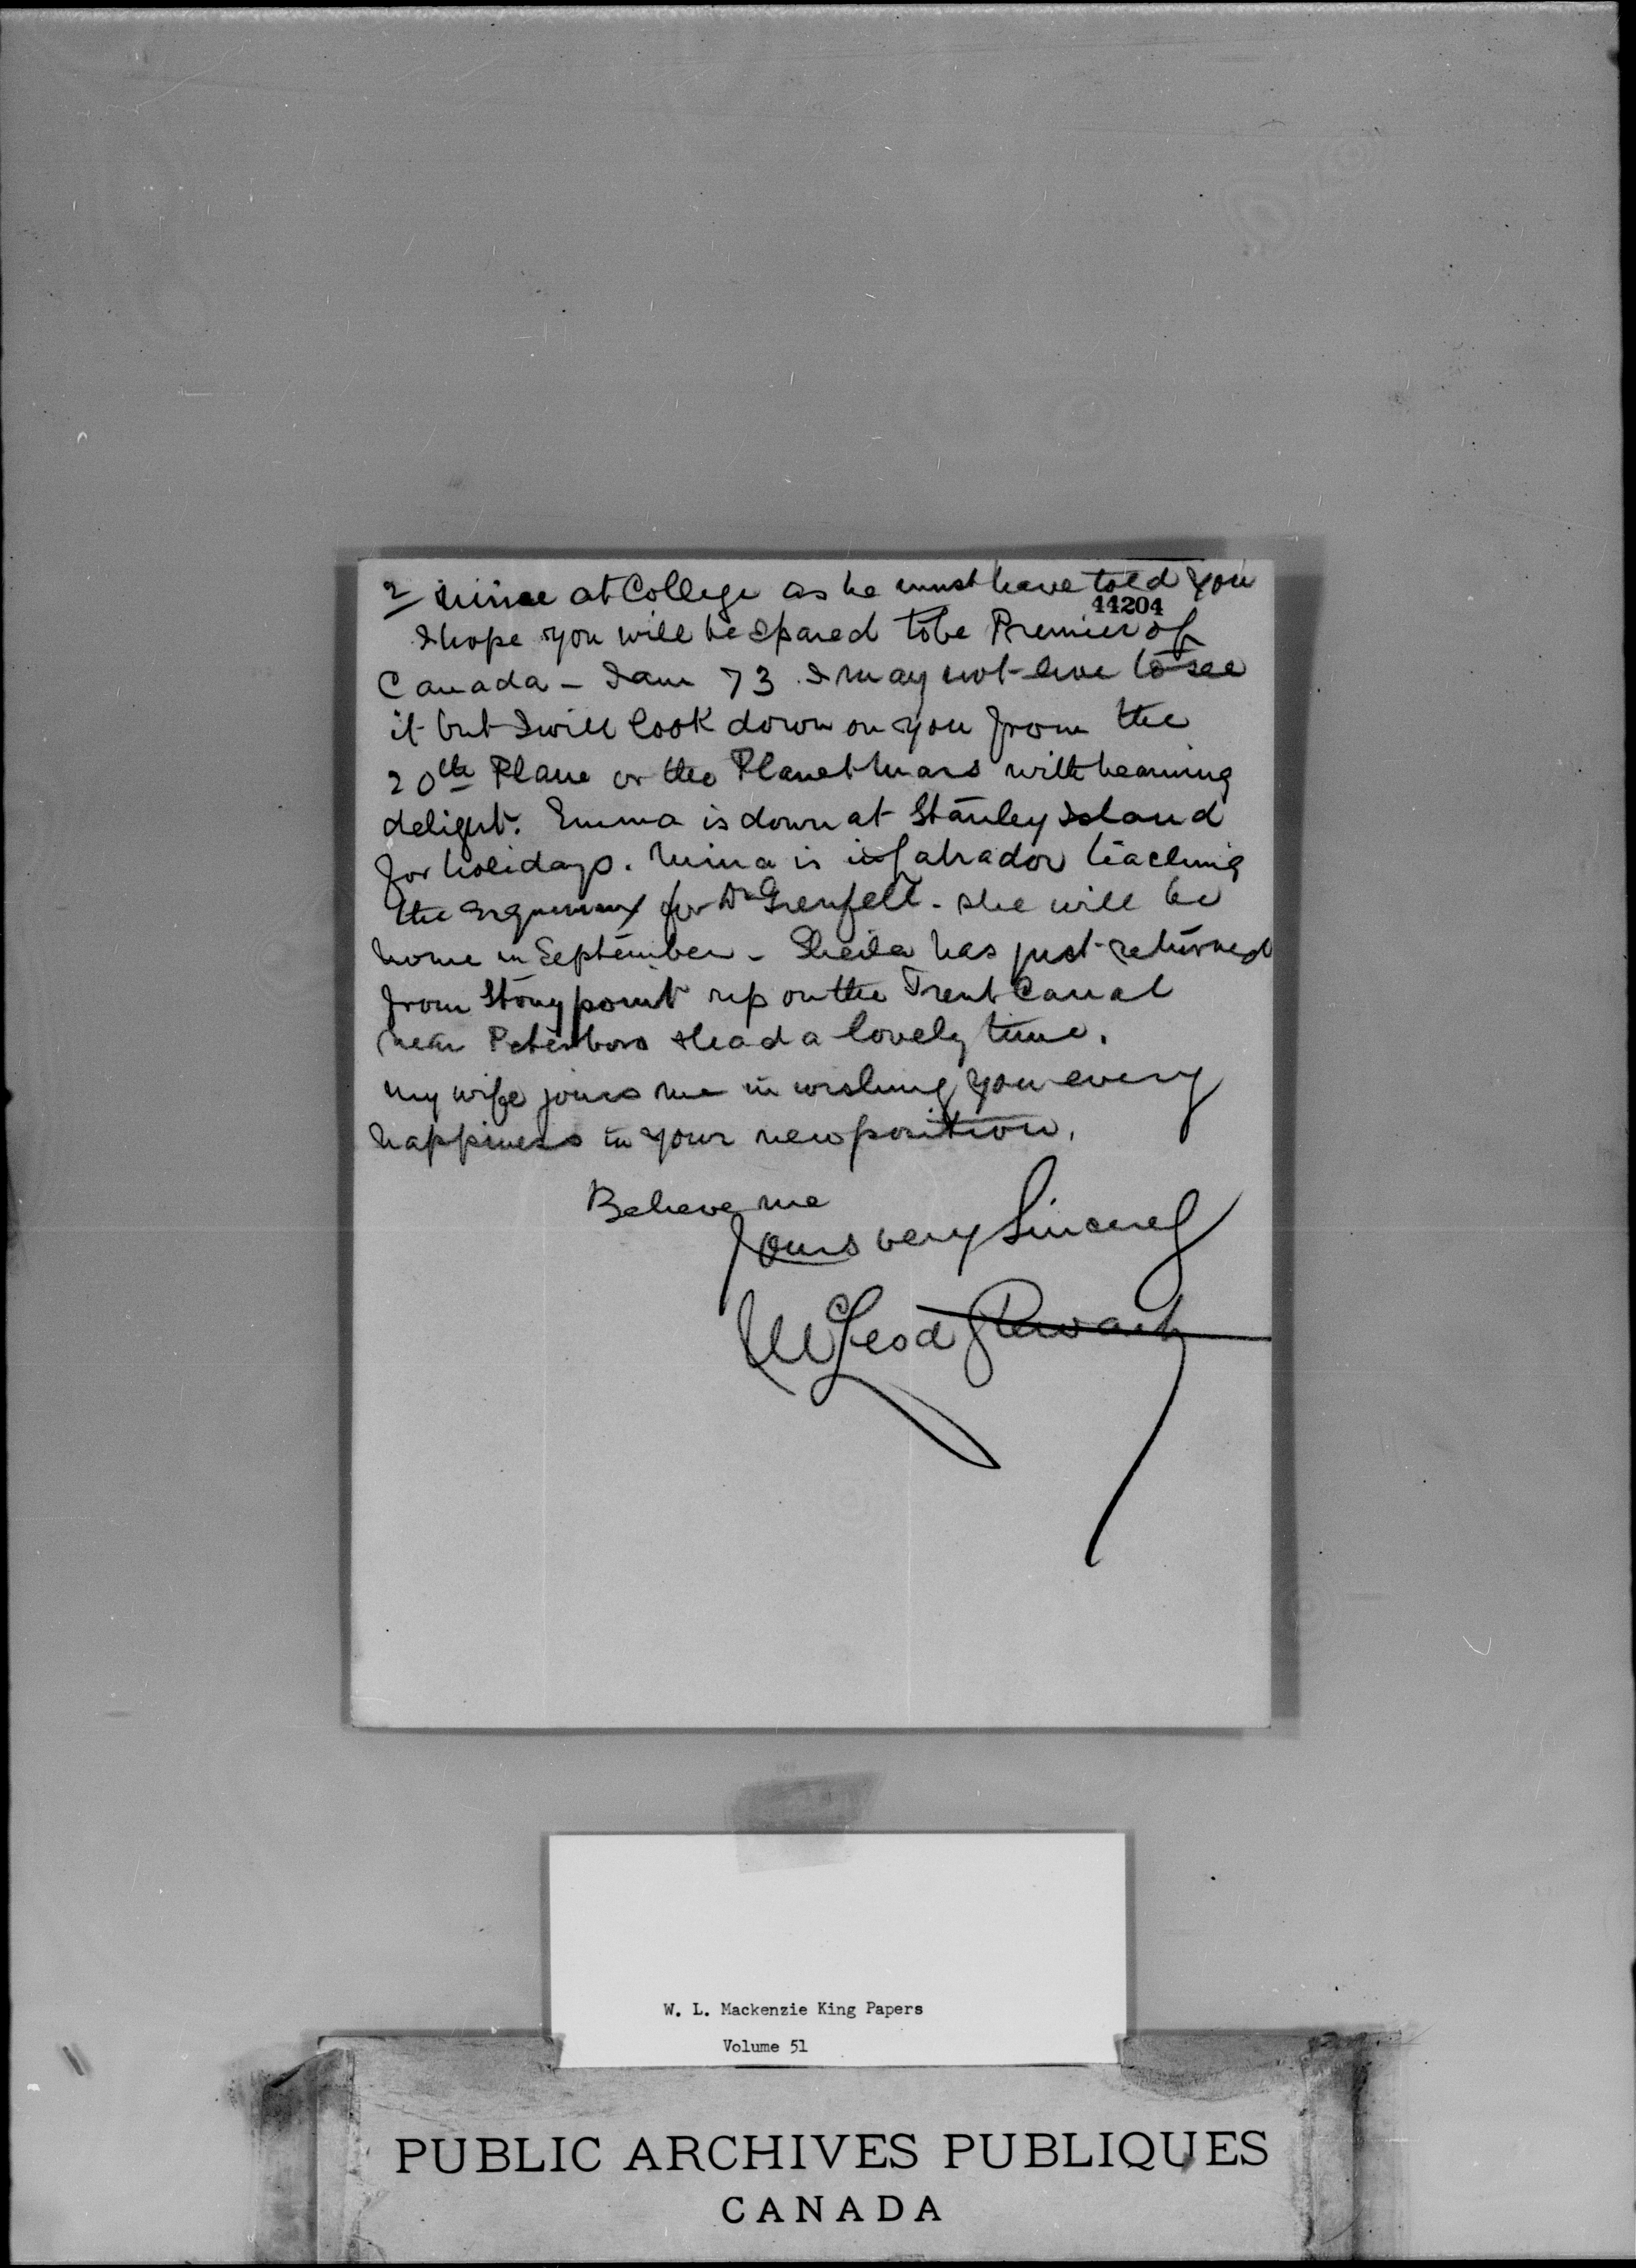 2 mine at College as he must have told you
44204
I hope you will be spared to be Premier of
Canada - I am 73 I may not live to see
it but I will look down on you from the
20th Plane or the Planet Mars with beaming
delight. Emma is down at Stanley Island
for holidays. Mina is in Labrador teaching
the for Dr Grenfell - she will be
home in September - Sheila has just returned
from Stony point up on the Trent Canal
near Peterboro & had a lovely time.
My wife joins me in wishing you every
happiness in your new position.
Believe me
Yours very Sincerely
McLeod Stewart
W. L. Mackenzie King Papers
Volume 51
PUBLIC ARCHIVES PUBLIQUES
CANADA